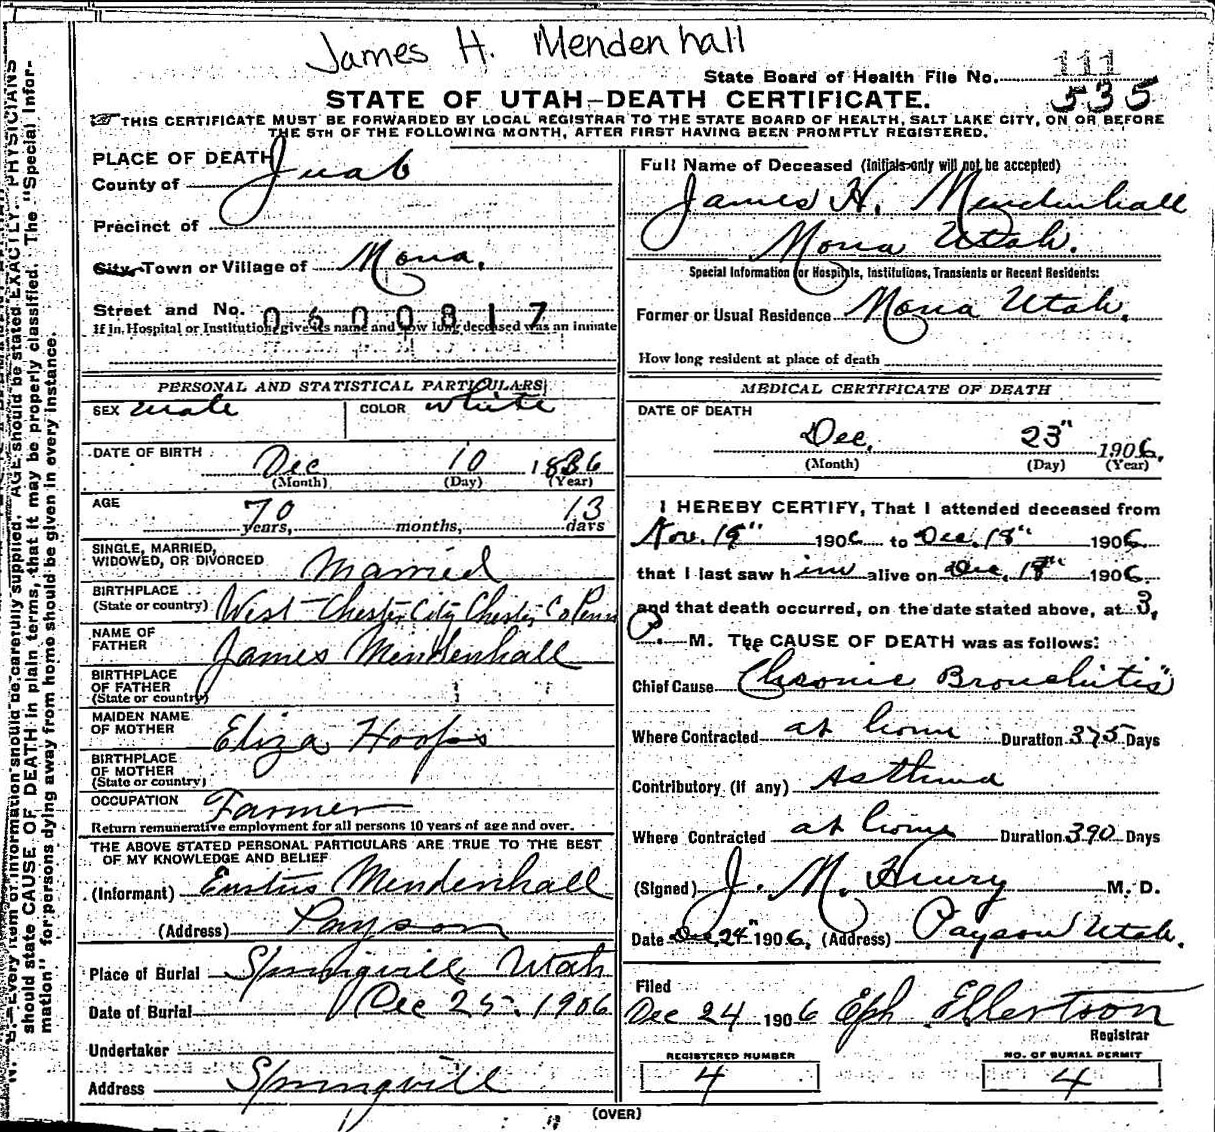 James H. Mendenhall
State Board of Health File No. 111
535
STATE OF UTAH-DEATH CERTIFICATE.
THIS CERTIFICATE MUST BE FORWARDED BY LOCAL REGISTRAR TO THE STATE BOARD OF HEALTH, SALT LAKE CITY, ON OR BEFORE
THE 5TH OF THE FOLLOWING MONTH, AFTER FIRST HAVING BEEN PROMPTLY REGISTERED.
PLACE OF DEATH
County of Juab
Precinct of
City, Town or Village of Mona.
Street and No. 0600817
If in Hospital or Institution, give its name and how long deceased was an inmate
PERSONAL AND STATISTICAL PARTICULARS
SEX male COLOR white
DATE OF BIRTH Dec 10 1836
(Month) (Day) (Year)
AGE 70 years, months, 13 days
SINGLE, MARRIED,
WIDOWED, OR DIVORCED Married
BIRTHPLACE
(State or country) West-Chester City Chester Co Penn
NAME OF
FATHER James Mendenhall
BIRTHPLACE
OF FATHER
(State or country)
MAIDEN NAME
OF MOTHER Eliza Hoops
BIRTHPLACE
OF MOTHER
(State or country)
OCCUPATION Farmer
Return remunerative employment for all persons 10 years of age and over.
THE ABOVE STATED PERSONAL PARTICULARS ARE TRUE TO THE BEST
OF MY KNOWLEDGE AND BELIEF
(Informant) Mendenhall
(Address) Payson
Place of Burial Springville Utah
Date of Burial Dec 25. 1906
Undertaker
Address Springvill
Full Name of Deceased (Initials only will not be accepted)
James H. Mendenhall
Mona Utah.
Special Information for Hospitals, Institutions, Transients or Recent Residents:
Former or Usual Residence Mona Utah.
How long resident at place of death
MEDICAL CERTIFICATE OF DEATH
DATE OF DEATH
Dec. 23" 1906.
(Month) (Day) (Year)
I HEREBY CERTIFY, That I attended deceased from
Nov. 19" 1906 to Dec. 18" 1906.
that I last saw him alive on Dec. 18" 1906.
and that death occurred, on the date stated above, at 3,
P. M. The CAUSE OF DEATH was as follows:
Chief Cause "Chronic Bronchitis"
Where Contracted at home Duration 375 Days
Contributory (if any) Asthma
Where Contracted at home Duration 390 Days
(Signed) J. M. Henry M. D.
Date Dec 24" 1906, (Address) Payson Utah.
Filed
Dec 24 1906 Eph Ellertson
Registrar
REGISTERED NUMBER
4
NO. OF BURIAL PERMIT
4
(OVER)
N. B.—Every item of information should be carefully supplied. AGE should be stated EXACTLY. PHYSICIANS
should state CAUSE OF DEATH in plain terms, that it may be properly classified. The "Special Infor-
mation" for persons dying away from home should be given in every instance.